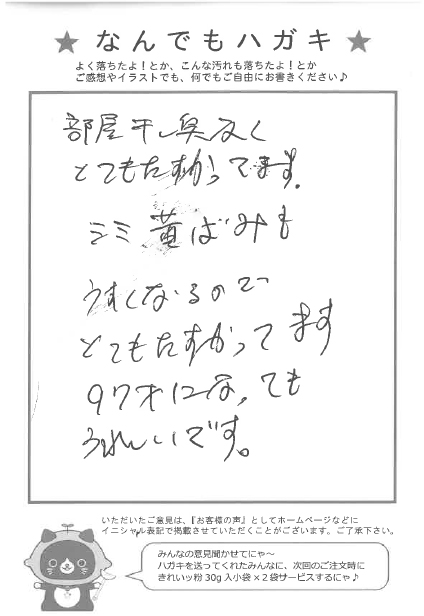 ★ なんでもハガキ ★
よく落ちたよ！とか、こんな汚れも落ちたよ！とか
ご感想やイラストでも、何でもご自由にお書きください♪
部屋干し臭なく
とてもたすかってます。
シミ 黄ばみも
うすくなるので
とてもたすかってます
97才になっても
うれしいです。
いただいたご意見は、『お客様の声』としてホームページなどに
イニシャル表記で掲載させていただくことがございます。ご了承下さい。
みんなの意見聞かせてにゃ～
ハガキを送ってくれたみんなに、次回のご注文時に
きれいッ粉 30g 入小袋 × 2 袋サービスするにゃ♪